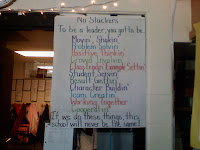 No Slackers
To be a leader, you got to be...
Movin', Shakin'
Problem Solvin'
Positive Thinkin'
Crowd Inspirin'
Class Leadin', Example Settin'
Student Servin'
Result Gettin'
Character Buildin'
Team Creatin'
Working Together
Cooperatin'
If we do these things, this
school will never be the same!